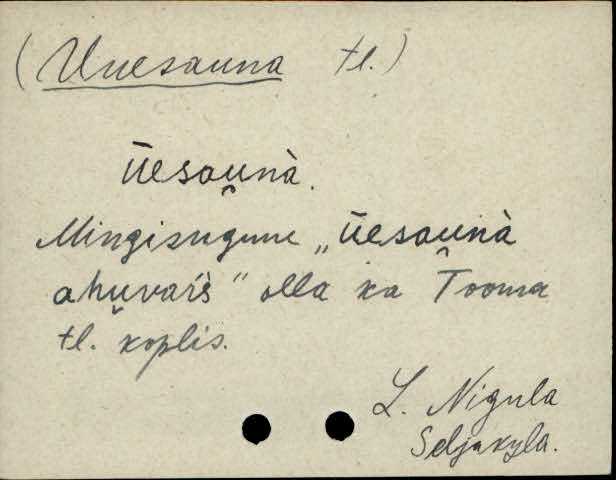 (Uuesauna tl.)
ūesau̯nà.
Mingisugune „ūesau̯nà
ahu̬vaŕè" olla ka Tooma
tl. koplis.
L. Nigula
Seljaküla.